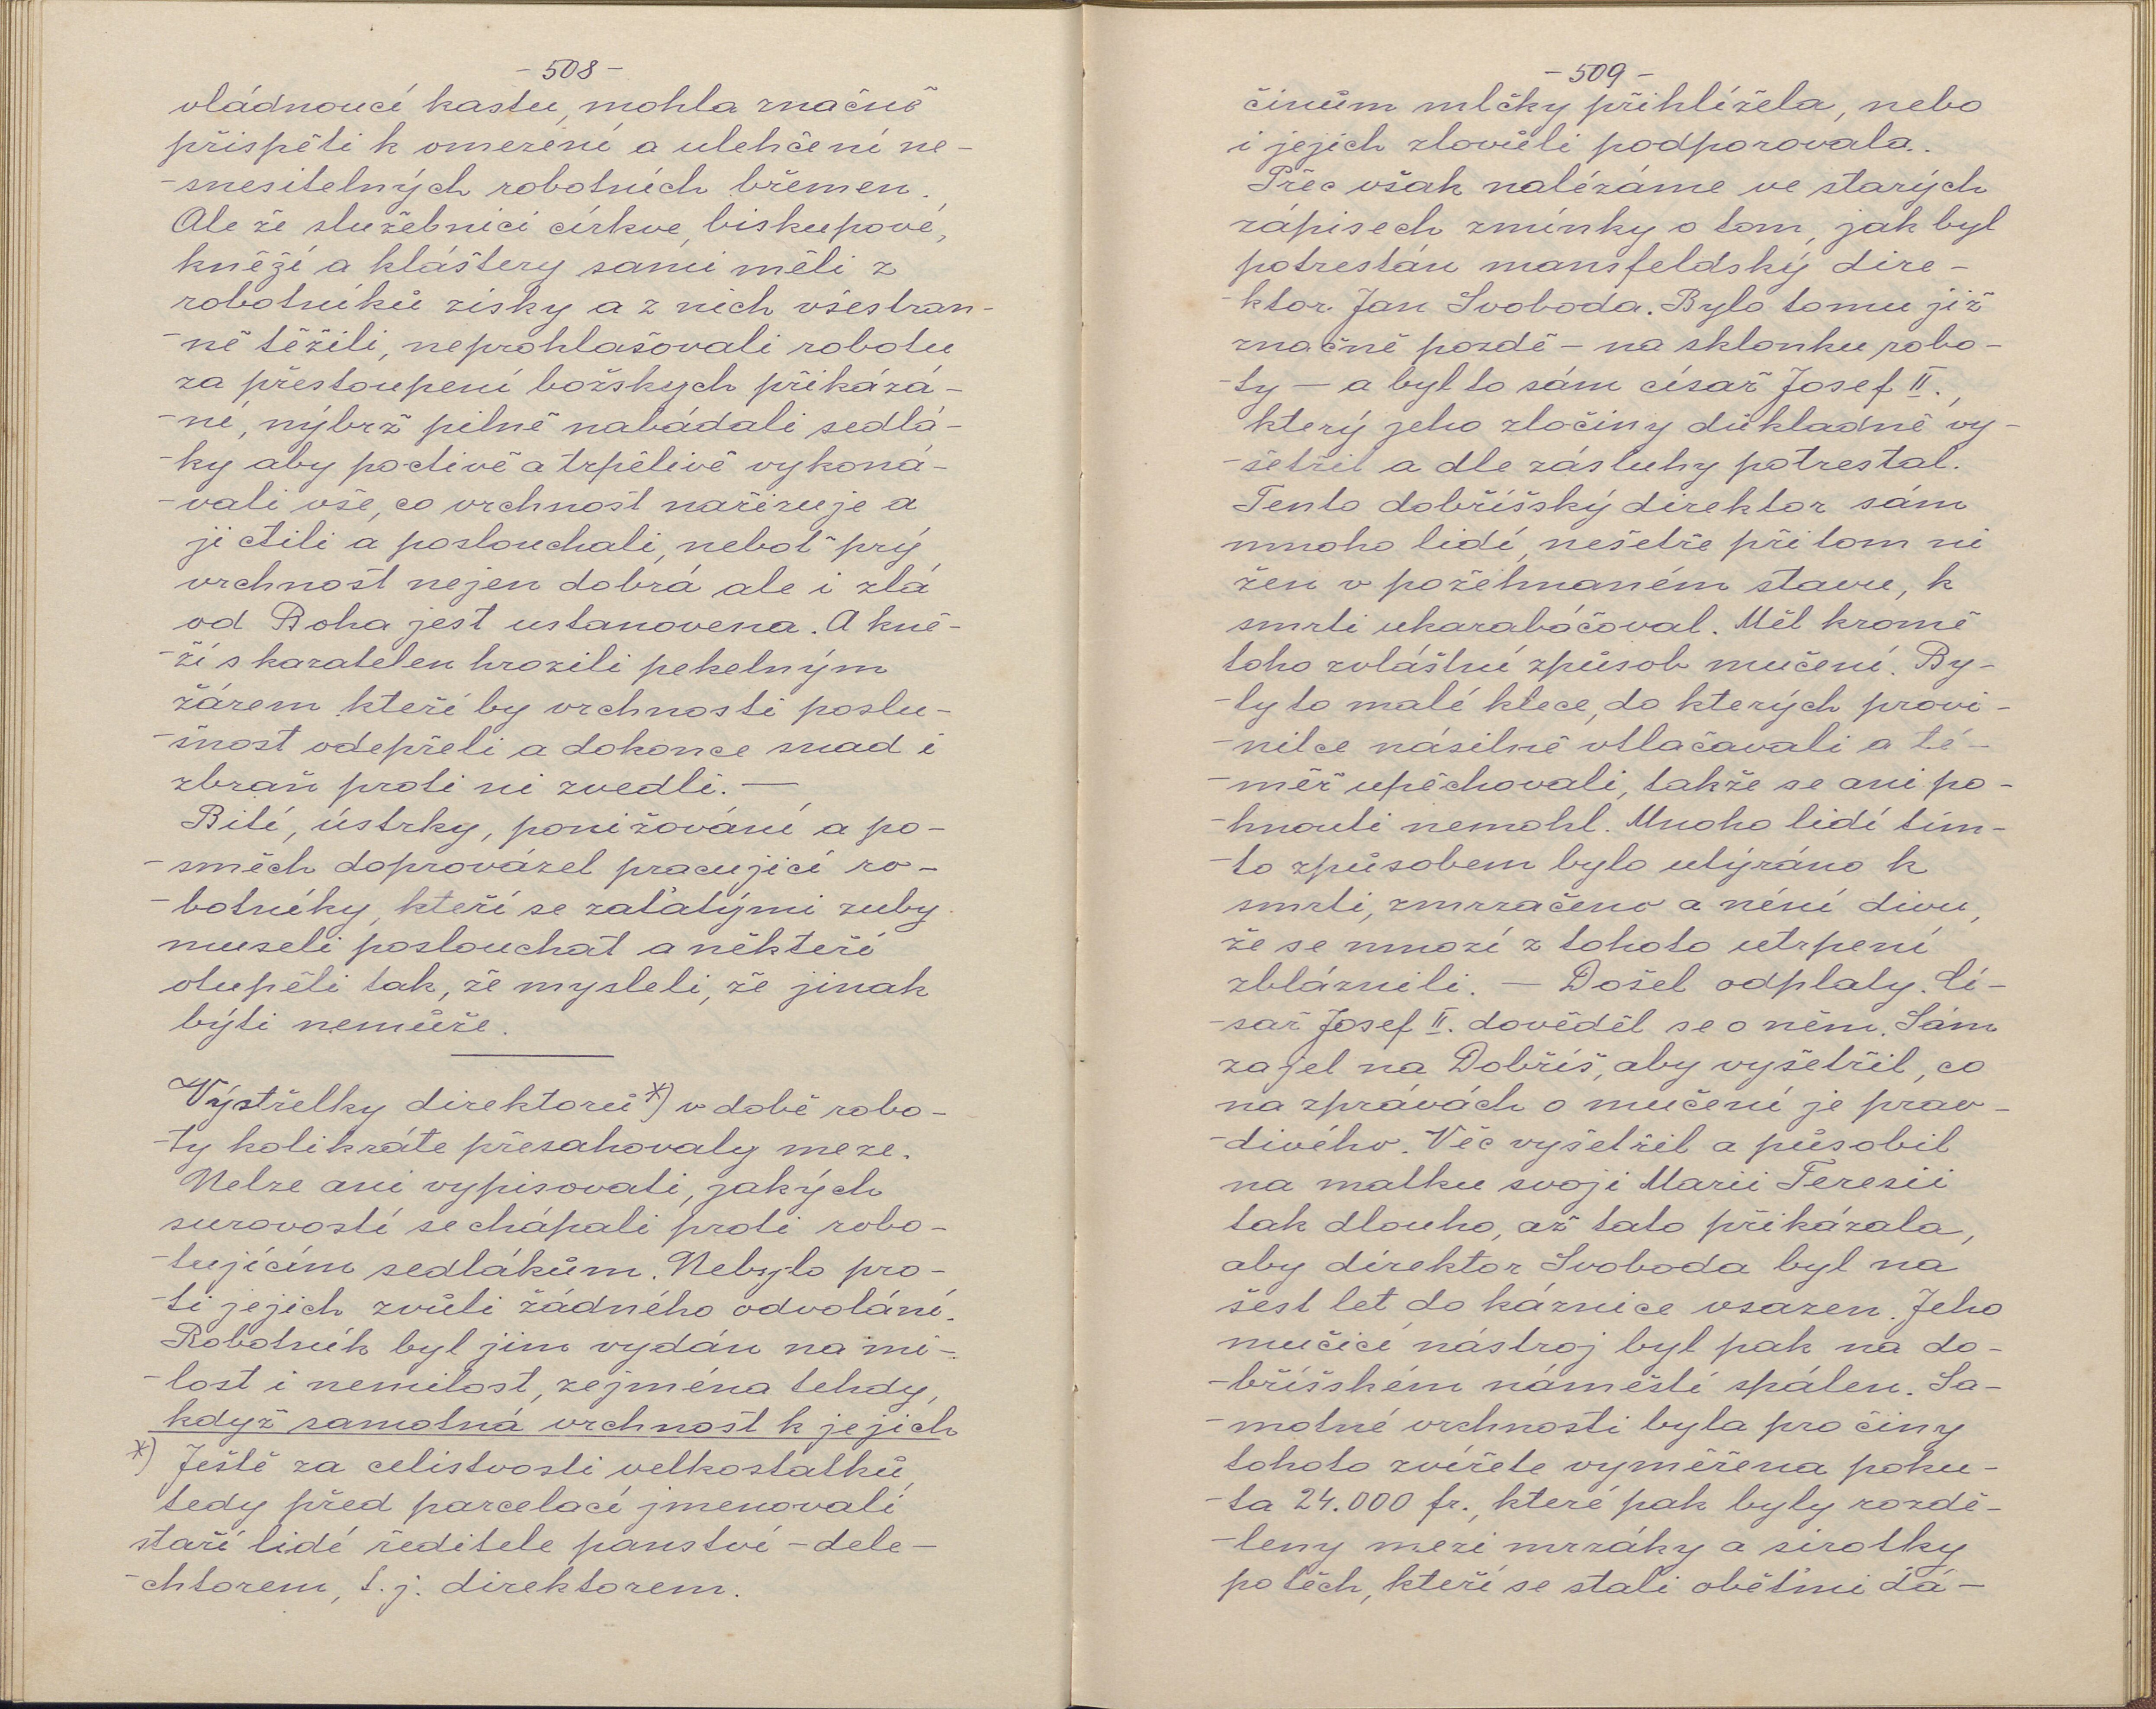 - 508 -
vládnoucí kastu, mohla značně
přispěti k omezení a ulehčení ne-
-snesitelných robotních břemen.
Ale že služebníci církve, biskupové,
kněží a kláštery sami měli z
robotníků zisky a z nich všestran-
-ně těžili, neprohlašovali robotu
za přestoupení božských přikázá-
-ní, nýbrž pilně nabádali sedlá-
-ky aby poctivě a trpělivě vykoná-
-vali vše, co vrchnost nařizuje a
ji ctili a poslouchali, neboť prý
vrchnost nejen dobrá ale i zlá
od Boha jest ustanovena. A kně-
-ží s kazatelen hrozili pekelným
žárem kteří by vrchnosti poslu-
-šnost odepřeli a dokonce snad i
zbraň proti ní zvedli. —
Bití, ústrky, ponižování a po-
-směch doprovázel pracující ro-
-botníky, kteří se zaťatými zuby
museli poslouchat a někteří
otupěli tak, že mysleli, že jinak
býti nemůže.
Výstřelky direktorů *) v době robo-
-ty kolikráte přesahovaly meze.
Nelze ani vypisovati, jakých
surovostí se chápali proti robo-
-tujícím sedlákům. Nebylo pro-
-ti jejich zvůli žádného odvolání.
Robotník byl jim vydán na mi-
-lost i nemilost, zejména tehdy,
když samotná vrchnost k jejich
*) Ještě za celistvosti velkostatků,
tedy před parcelací jmenovali
staří lidé ředitele panství - dele-
-chtorem, t.j. direktorem.
- 509 -
činům mlčky přihlížela, nebo
i jejich zlovůli podporovala.
Přec však nalézáme ve starých
zápisech zmínky o tom, jak byl
potrestán mansfeldský dire-
-ktor Jan Svoboda. Bylo tomu již
značně pozdě - na sklonku robo-
-ty - a byl to sám císař Josef II.,
který jeho zločiny důkladně vy-
-šetřil a dle zásluhy potrestal.
Tento dobříšský direktor sám
mnoho lidí, nešetře při tom ni
žen v požehnaném stavu, k
smrti ukarabáčoval. Měl kromě
toho zvláštní způsob mučení. By-
-ly to malé klece, do kterých provi-
-nilce násilně vtlačavali a té-
-měř upěchovali, takže se ani po-
-hnouti nemohl. Mnoho lidí tím-
-to způsobem bylo utýráno k
smrti, zmrzačeno a není divu,
že se mnozí z tohoto utrpení
zbláznili. — Došel odplaty. Cí-
-sař Josef II. dověděl se o něm. Sám
zajel na Dobříš, aby vyšetřil, co
na zprávách o mučení je prav-
-divého. Věc vyšetřil a působil
na matku svoji Marii Teresii
tak dlouho, až tato přikázala,
aby direktor Svoboda byl na
šest let do káznice vsazen. Jeho
mučící nástroj byl pak na do-
-bříšském náměstí spálen. Sa-
-motné vrchnosti byla pro činy
tohoto zvířete vyměřena poku-
-ta 24.000 fr., které pak byly rozdě-
-leny mezi mrzáky a sirotky
po těch, kteří se stali obětmi ďá-